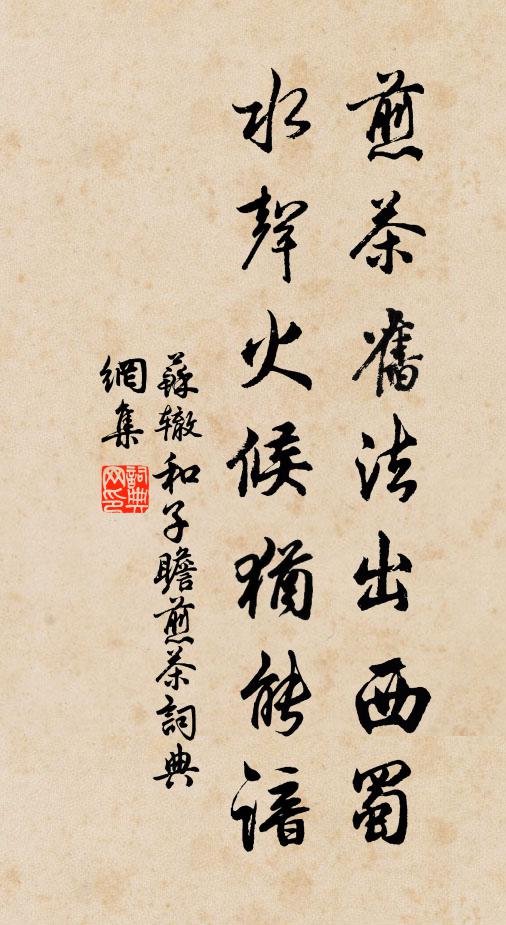 煎茶舊法出西蜀
水聲火候猶能諳
蘇辙和子瞻煎茶詞典
網集
詞典網印